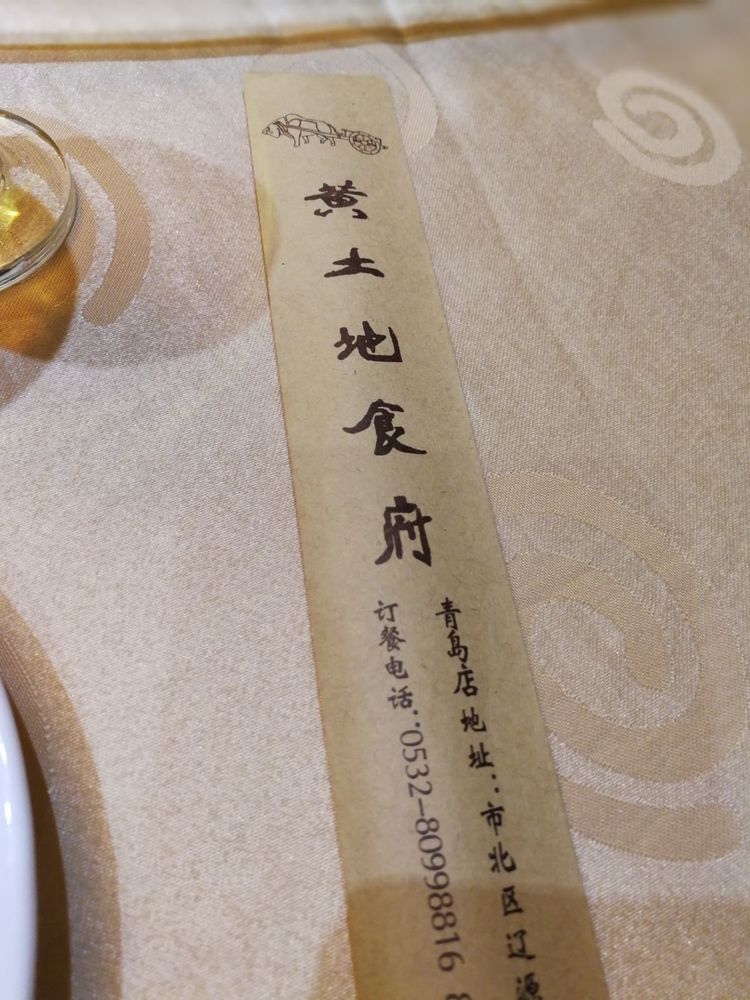 黄土地食府
青岛店地址：市北区辽源
订餐电话：0532-80998816 8